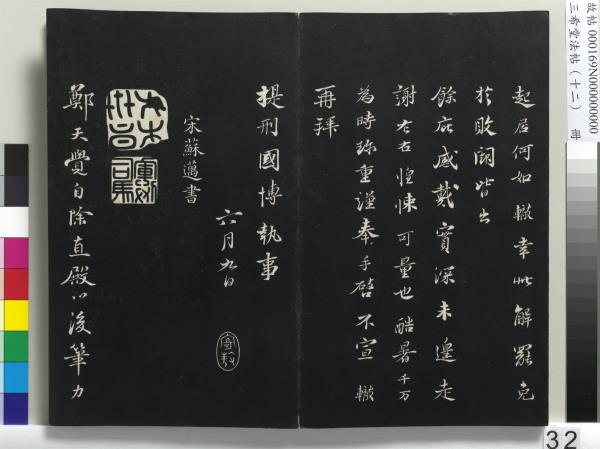 起居何如轍幸此解罷克
於敗闕皆出
餘庇感戴實深未遑走
謝左右惶悚可量也酷暑千万
為時珍重謹奉手啓不宣 轍
再拜
提刑國博執事
六月九日
宋蘇邁書
鄭天覺自除直殿以後筆力
故帖 000169N000000000
三希堂法帖（十二） 冊
32